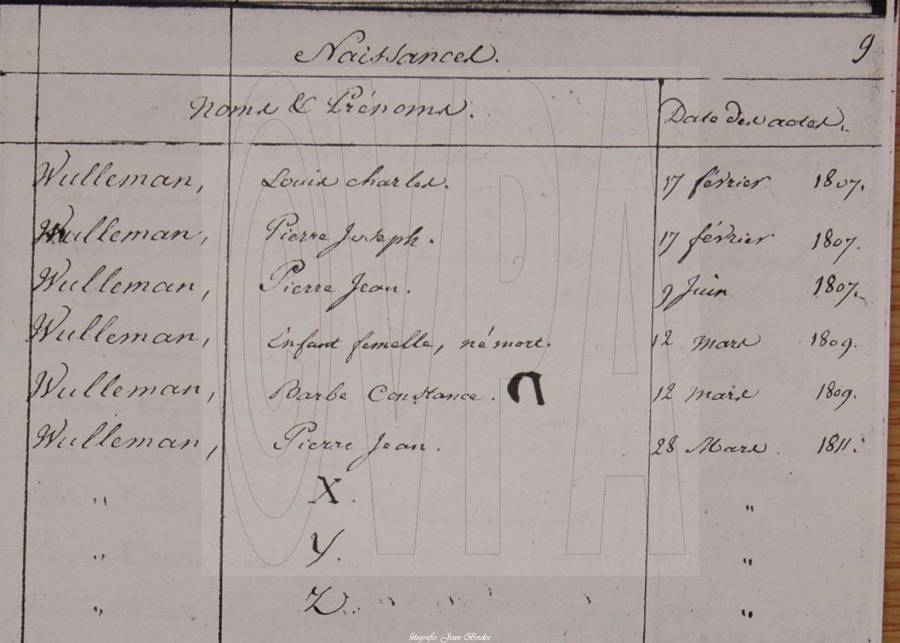 Naissances. 9
Noms & Prénoms. Date des actes.
Wulleman, Louis charles. 17 février 1807.
Wulleman, Pierre Joseph. 17 février 1807.
Wulleman, Pierre Jean. 9 Juin 1807.
Wulleman, Enfant femelle, né mort. 12 Mars 1809.
Wulleman, Barbe Constance. 12 mars 1809.
Wulleman, Pierre Jean. 28 Mars 1811.
" X. "
" Y. "
" Z. "
GVPA
fotografie Joan Bordon